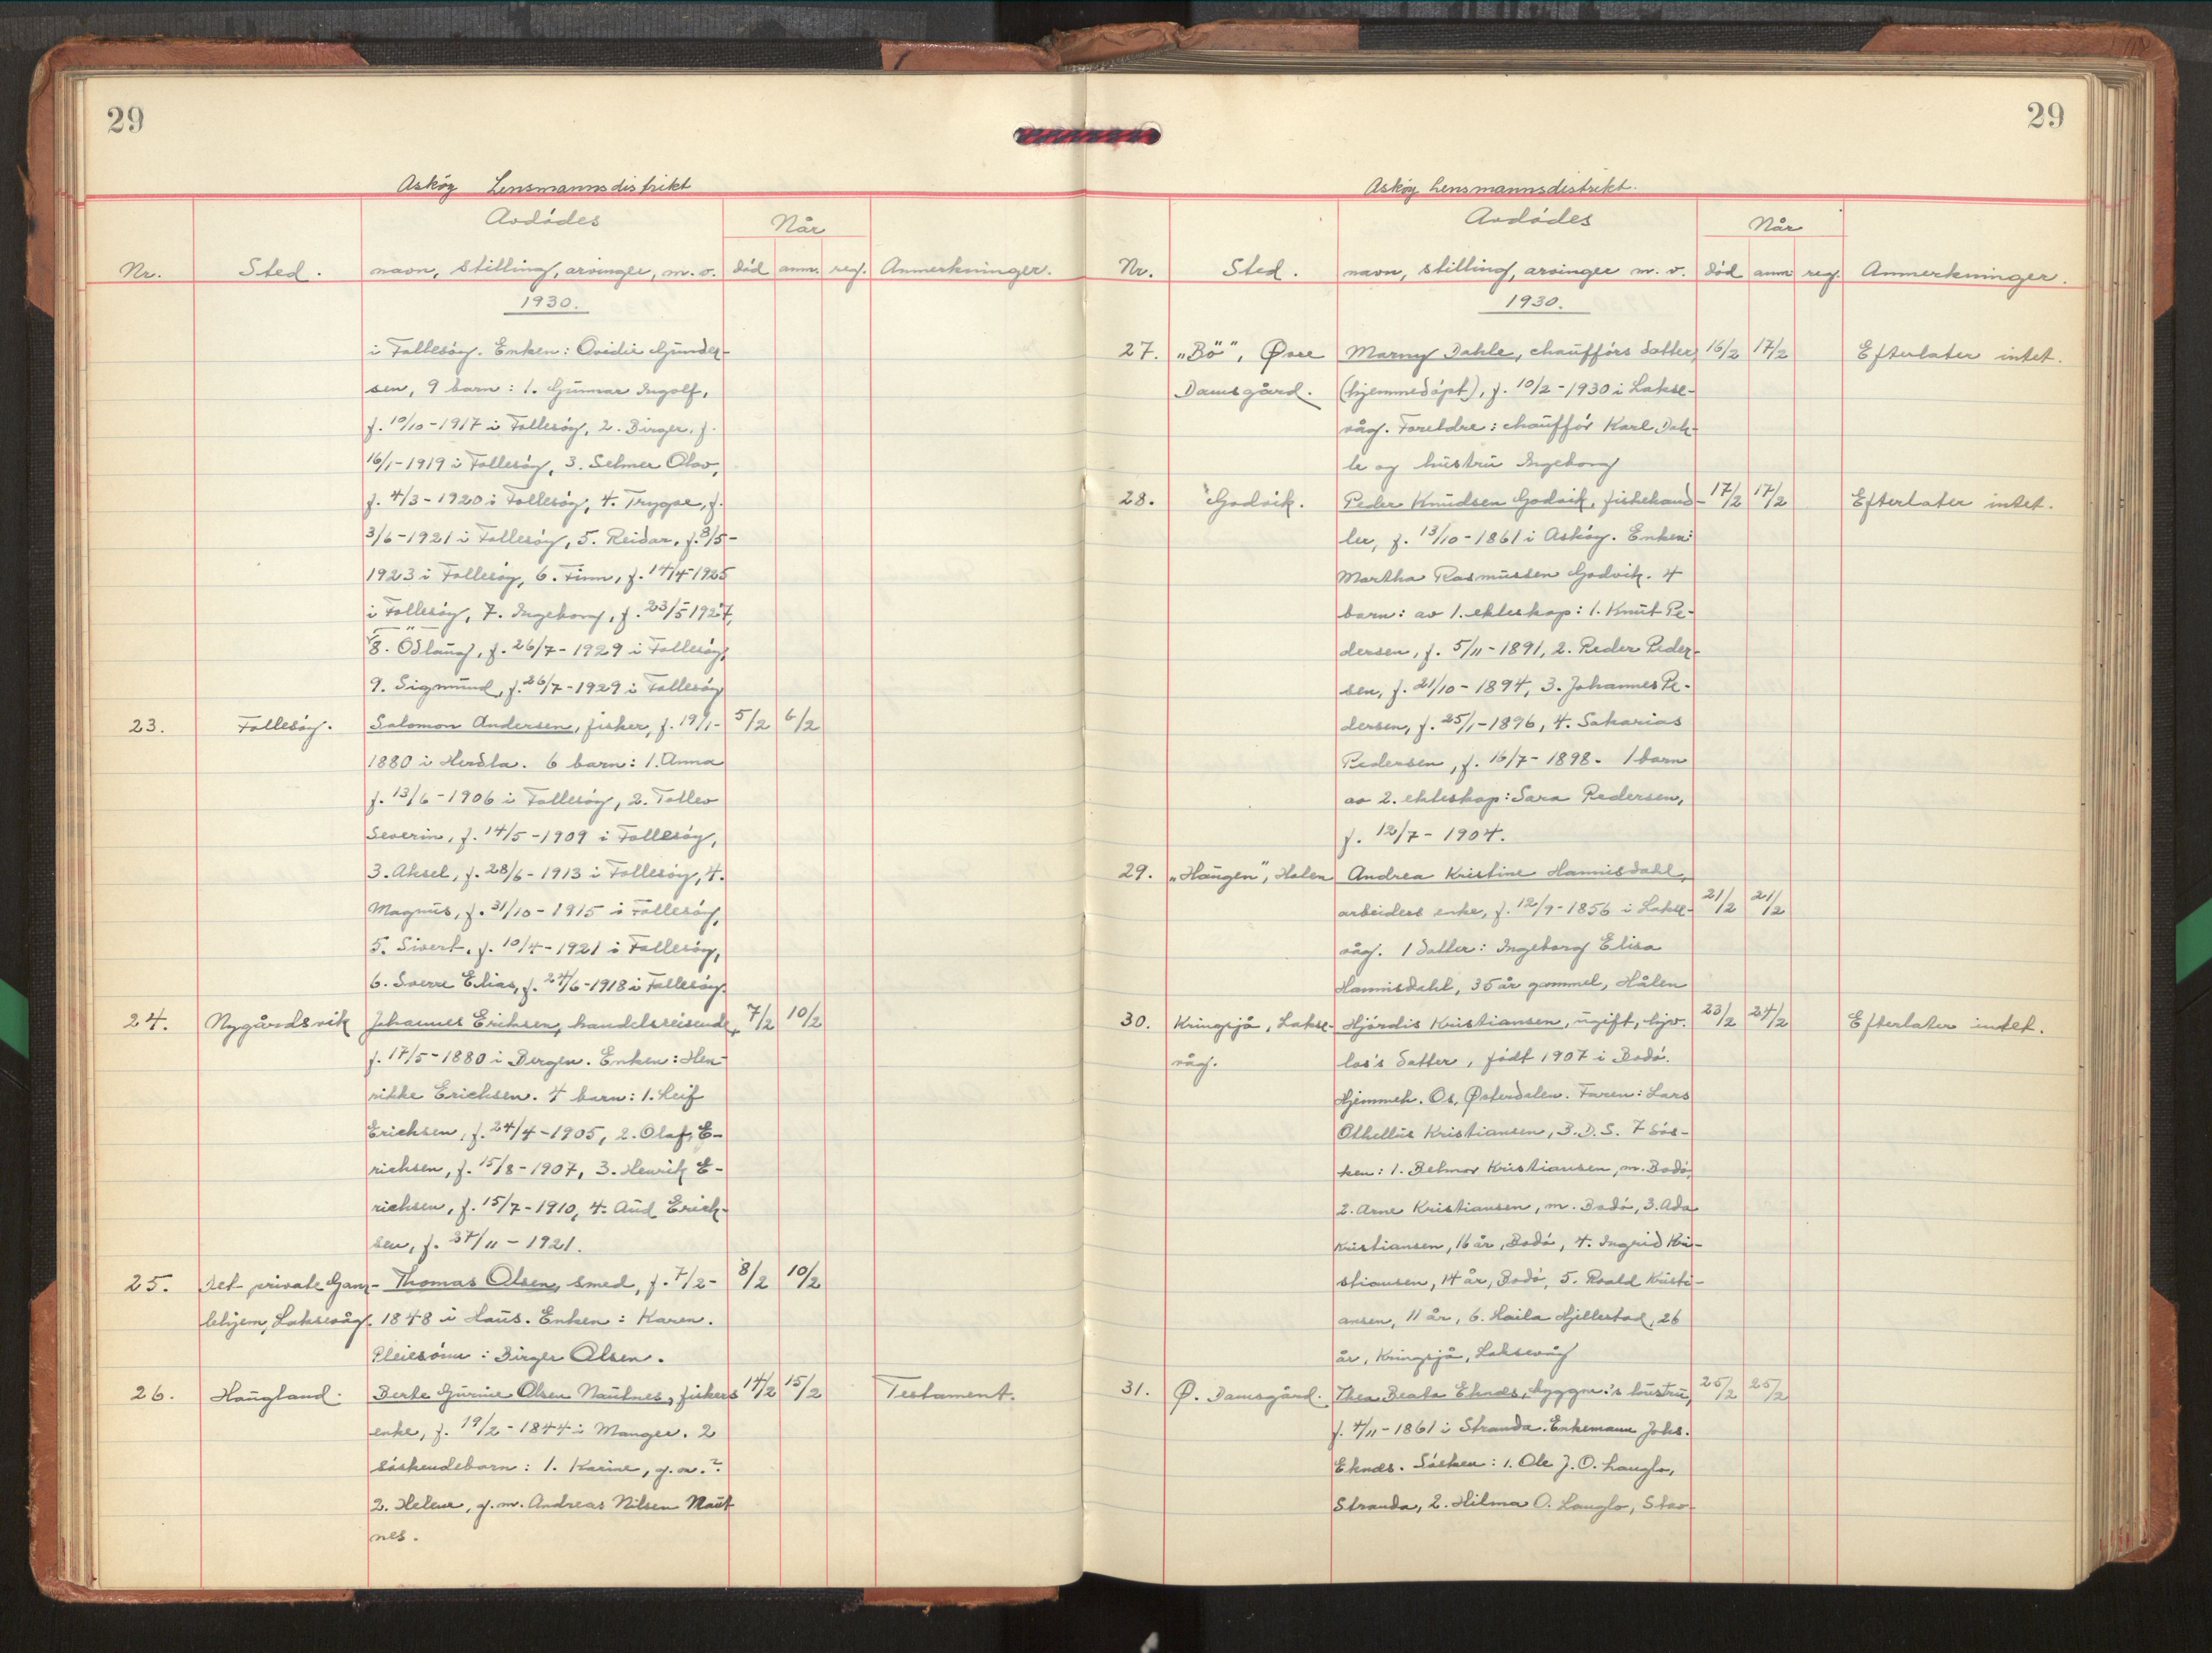 29
Askøy Lensmannsdistrikt
Avdødes
Når
Nr. Sted. navn, stilling, arvinger, m. v. død anm. reg. Anmerkninger.
1930.
i Follesøy. Enken: Ovidie Gunder-
sen, 9 barn: 1. Gunnar Ingolf,
f. 10/10-1917 i Follesøy, 2. Birger, f.
16/1-1919 i Follesøy, 3. Selmer Olav,
f. 4/3-1920 i Follesøy, 4. Trygve, f.
3/6-1921 i Follesøy, 5. Reidar, f. 8/5-
1923 i Follesøy, 6. Finn, f. 14/4-1925
i Follesøy, 7. Ingeborg, f. 23/5-1927,
8. Odlaug, f. 26/7-1929 i Follesøy,
9. Sigmund, f. 26/7-1929 i Follesøy
23. Follesøy. Salomon Andersen, fisker, f. 19/1- 5/2 6/2
1880 i Herdla. 6 barn: 1. Anna
f. 13/6-1906 i Follesøy, 2. Tollev
Severin, f. 14/5-1909 i Follesøy,
3. Aksel, f. 28/6-1913 i Follesøy, 4.
Magnus, f. 31/10-1915 i Follesøy,
5. Sivert, f. 10/4-1921 i Follesøy,
6. Sverre Elias, f. 24/6-1918 i Follesøy.
24. Nygårdsvik Johannes Erichsen, handelsreisende, 7/2 10/2
f. 17/5-1880 i Bergen. Enken: Hen-
rikke Erichsen. 4 barn: 1. Leif
Erichsen, f. 24/4-1905, 2. Olaf E-
richsen, f. 15/8-1907, 3. Henrik E-
richsen, f. 15/7-1910, 4. Aud Erich-
sen, f. 27/11-1921.
25. Det private Gam- Thomas Olsen, smed, f. 7/2- 8/2 10/2
lehjem, Laksevåg. 1848 i Haus. Enken: Karen.
Pleiesønn: Birger Olsen.
26. Haugland. Berte Gurine Olsen Nautnes, fiskers 14/2 15/2 Testament.
enke, f. 19/2-1844 i Manger. 2
søskendebarn: 1. Karine, g.m.?
2. Helene, g.m. Andreas Nilsen Naut
nes.
29
Askøy Lensmannsdistrikt.
Avdødes
Når
Nr. Sted. navn, stilling, arvinger m. v. død anm reg. Anmerkninger.
1930.
27. „Bö", Øvre Marny Dahle, chaufförs datter, 16/2 17/2 Efterlater intet.
Damsgård. (hjemmedøpt), f. 10/2-1930 i Lakse-
våg. Foreldre: chauffør Karl Dah-
le og hustru Ingeborg
28. Godvik. Peder Knudsen Godvik, fiskehand- 17/2 17/2 Efterlater intet.
ler, f. 13/10-1861 i Askøy. Enken:
Martha Rasmussen Godvik. 4
barn: av 1. ekteskap: 1. Knut Pe-
dersen, f. 5/11-1891, 2. Peder Peder-
sen, f. 21/10-1894, 3. Johannes Pe-
dersen, f. 25/1-1896, 4. Sakarias
Pedersen, f. 16/7-1898. 1 barn
av 2. ekteskap: Sara Pedersen,
f. 12/7-1904.
29. „Haugen", Holen Andrea Kristine Hannisdahl,
arbeiders enke, f. 12/9-1856 i Lakse- 21/2 21/2
våg. 1 datter: Ingeborg Elisa
Hannisdahl, 35 år gammel, Hålen
30. Kringsjå, Lakse- Hjørdis Kristiansen, ugift, hjv. 23/2 24/2 Efterlater intet.
våg. los's datter, født 1907 i Bodø.
Hjemmeh. Os, Østerdalen. Faren: Lars
Othellius Kristiansen, B.D.S. 7 søs-
ken: 1. Belmor Kristiansen, m. Bodø,
2. Arne Kristiansen, m. Bodø, 3. Ada
Kristiansen, 16 år, Bodø, 4. Ingrid Kri-
stiansen, 14 år, Bodø, 5. Roald Kristi-
ansen, 11 år, 6. Haila Hjellestad, 26
år, Kringsjå, Laksevåg
31. Ø. Damsgård. Thea Beata Eknes, byggm.'s hustru, 25/2 25/2
f. 4/11-1861 i Stranda. Enkemann Johs.
Eknes. Søsken: 1. Ole J. O. Langlo,
Stranda, 2. Hilma O. Langlo, Stav-